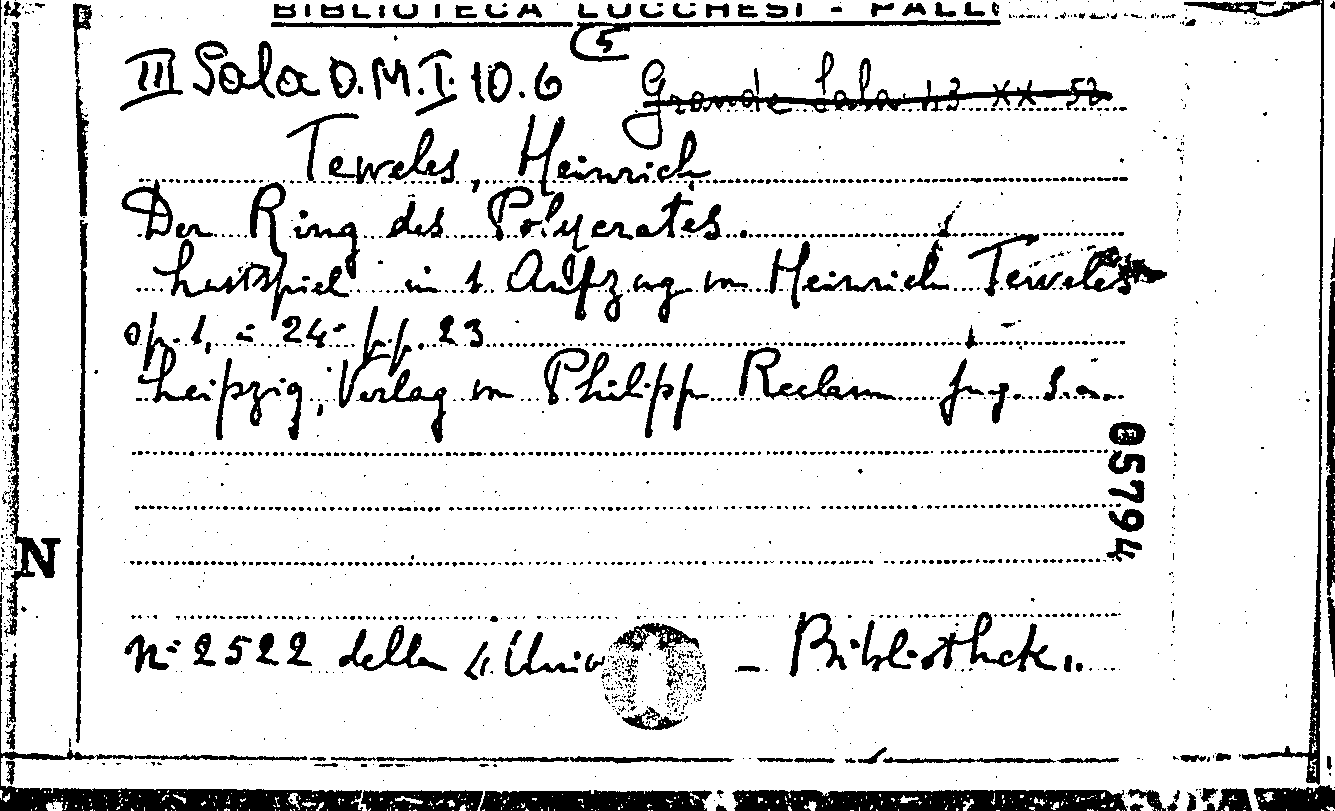 BIBLIOTECA LUCCHESI - PALLI
5
III Sala O.M.I. 10.6 Grande Sala 43 XX 52
Teweles, Heinrich
Der Ring des Polycrates.
Lustspiel in 1 Aufzug von Heinrich Teweles
op. 1, in 24° pp. 23
Leipzig, Verlag von Philipp Reclam jug. s.a.
05794
N
N° 2522 della "Univ - Bibliothek"